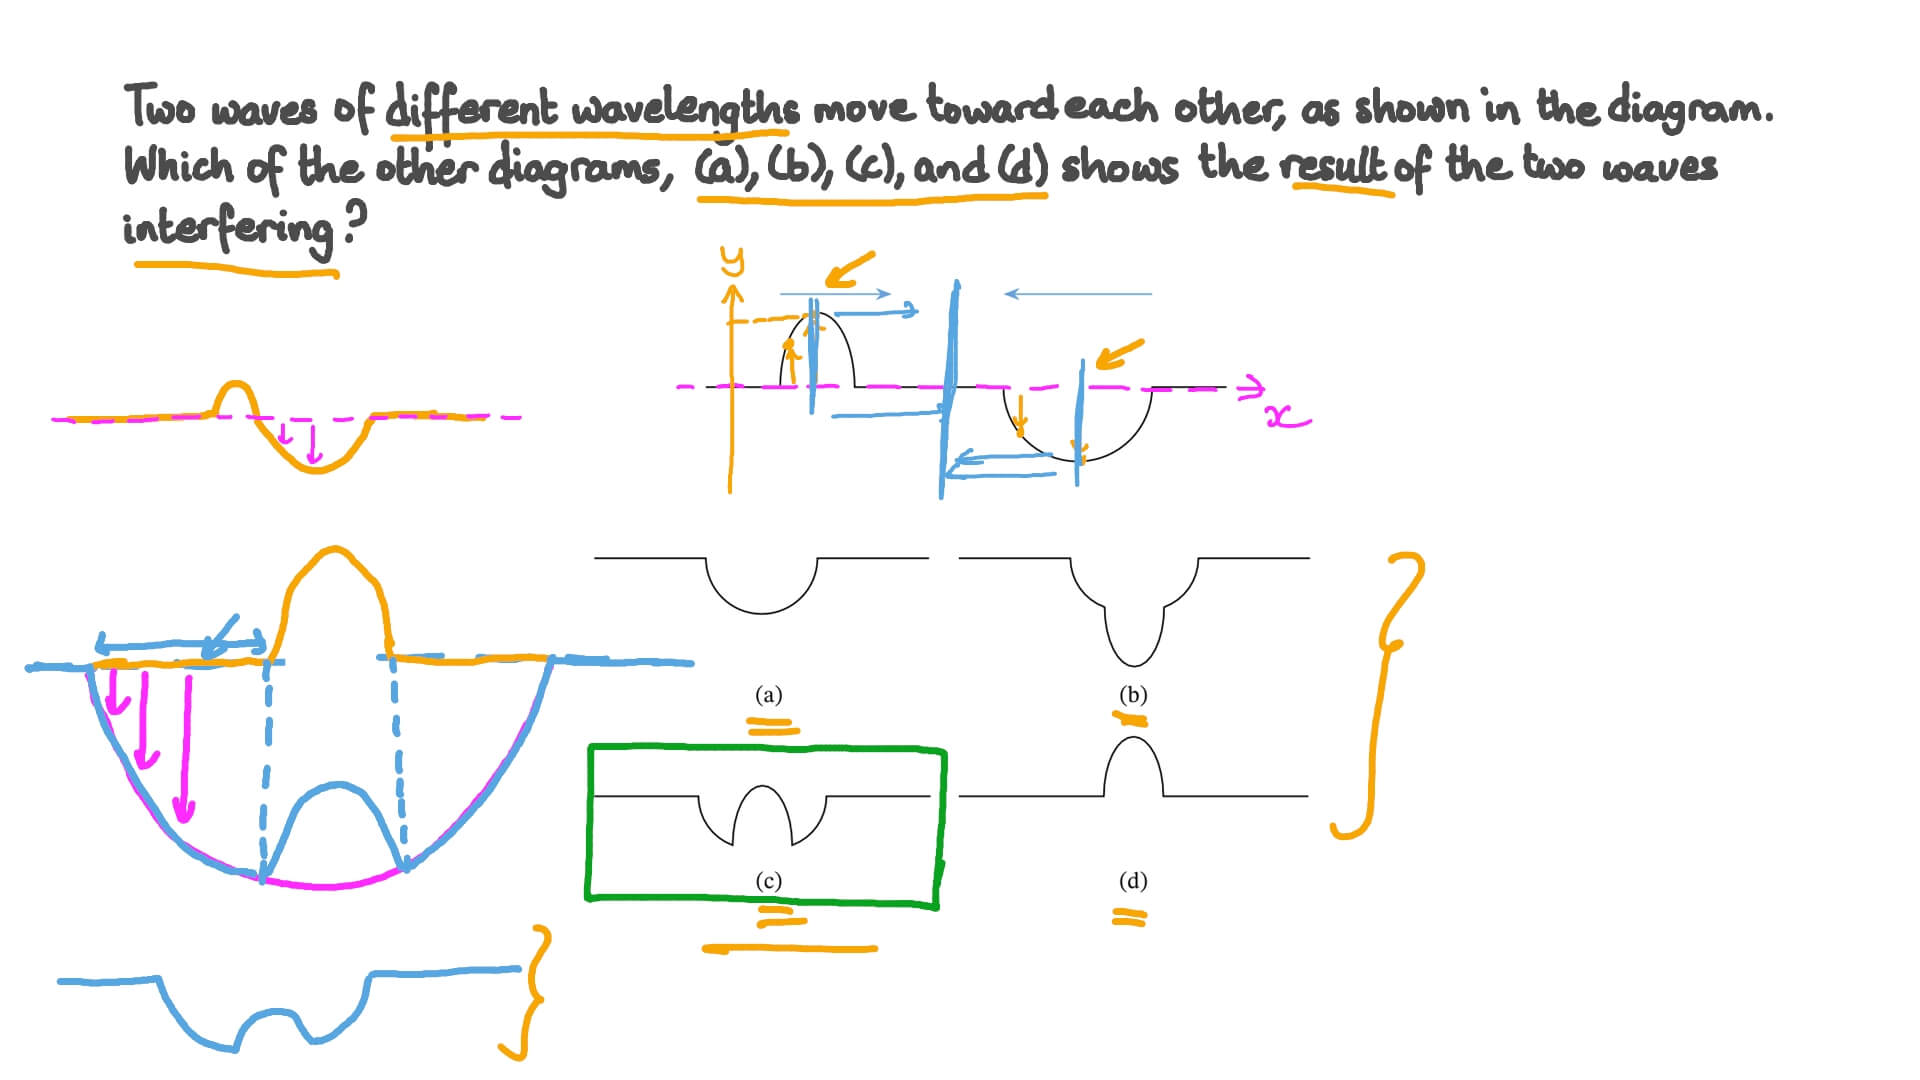 Two waves of different wavelengths move toward each other, as shown in the diagram.
Which of the other diagrams, (a), (b), (c), and (d) shows the result of the two waves
interfering?
y
x
(a)
(b)
(c)
(d)